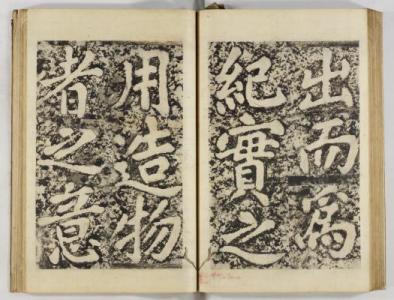 出而爲
紀實之
用造物
者之意